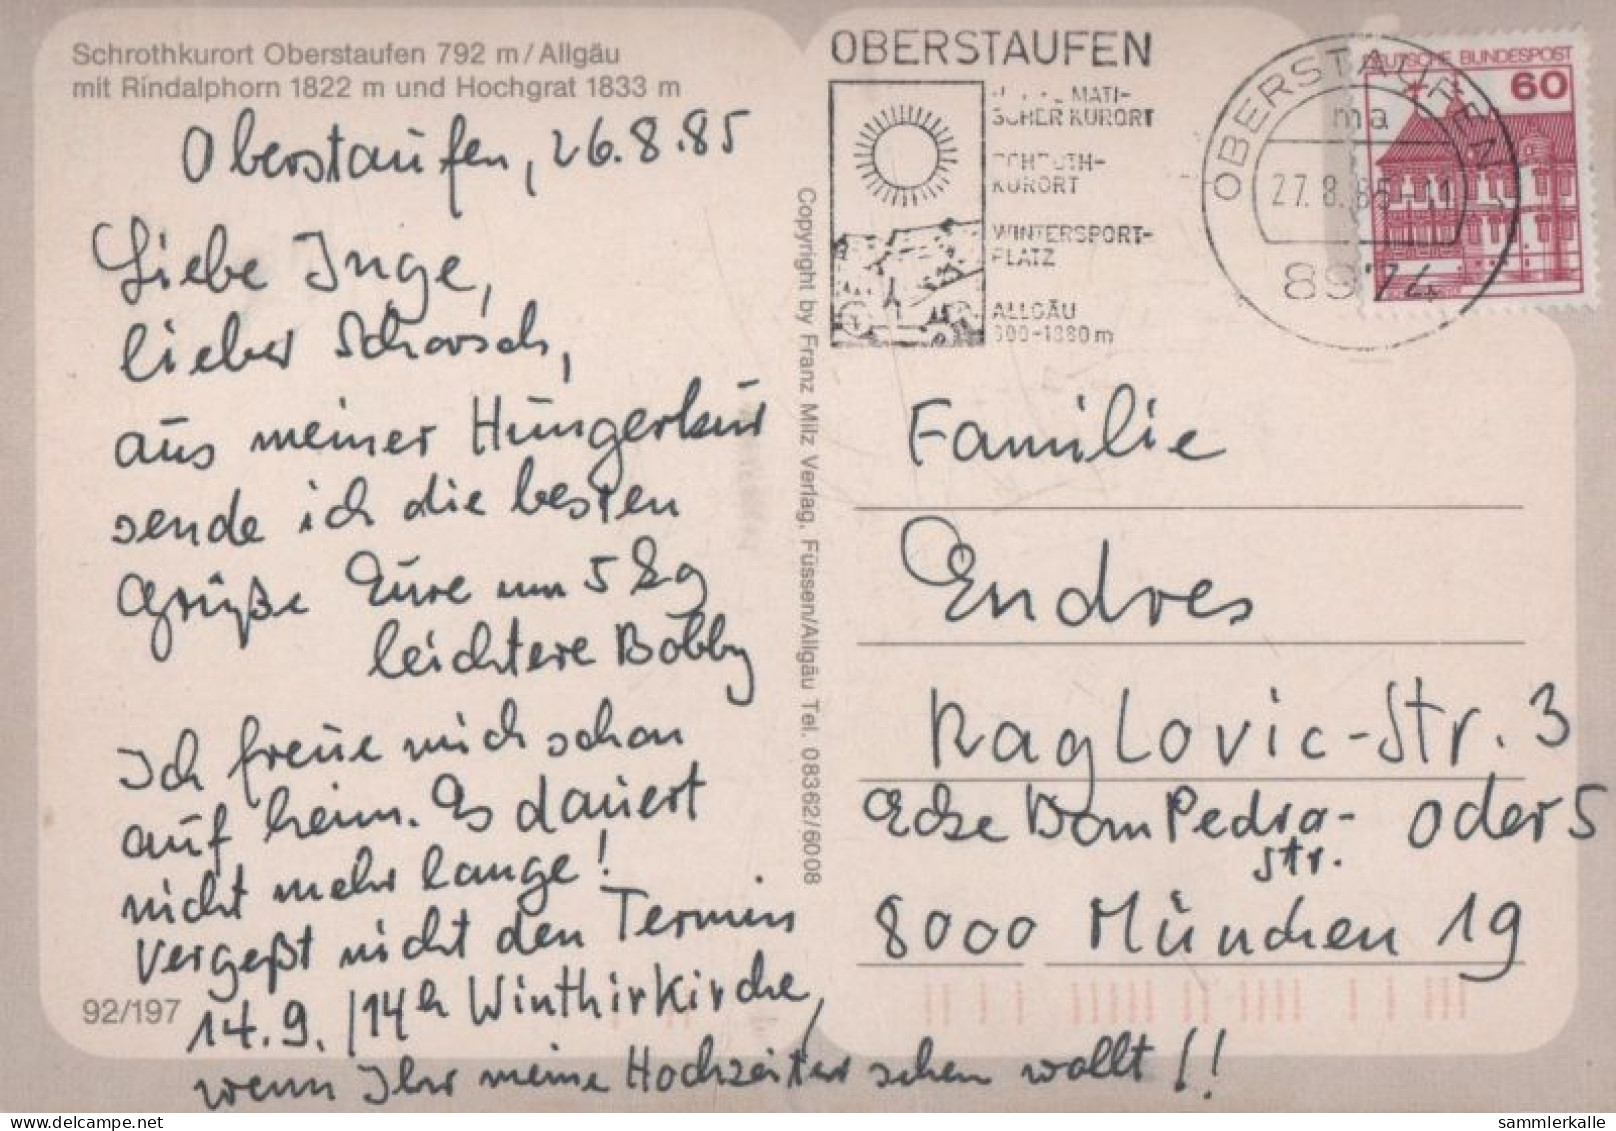 Schrothkurort Oberstaufen 792 m/Allgäu
mit Rindalphorn 1822 m und Hochgrat 1833 m
Oberstaufen, 26.8.85
Liebe Inge,
lieber Schorsch,
aus meiner Hungerkur
sende ich die besten
Grüße Eure um 5 kg
leichtere Bobby
Ich freue mich schon
auf heim. Es dauert
nicht mehr lange!
Vergeßt nicht den Termin
14.9. /14h Winthirkirche,
wenn Ihr meine Hochzeiter sehen wollt!!
92/197
Copyright by Franz Milz Verlag, Füssen/Allgäu Tel. 08362/6008
OBERSTAUFEN
MATI-
SCHER KURORT
SCHROTH-
KURORT
WINTERSPORT-
PLATZ
ALLGÄU
OBERSTAUFEN
ma
27.8.85-11
8974
DEUTSCHE BUNDESPOST
60
Familie
Endres
Raglovic-Str. 3
Ecke Dom Pedro- oder 5
Str.
8000 München 19
sammlerkalle